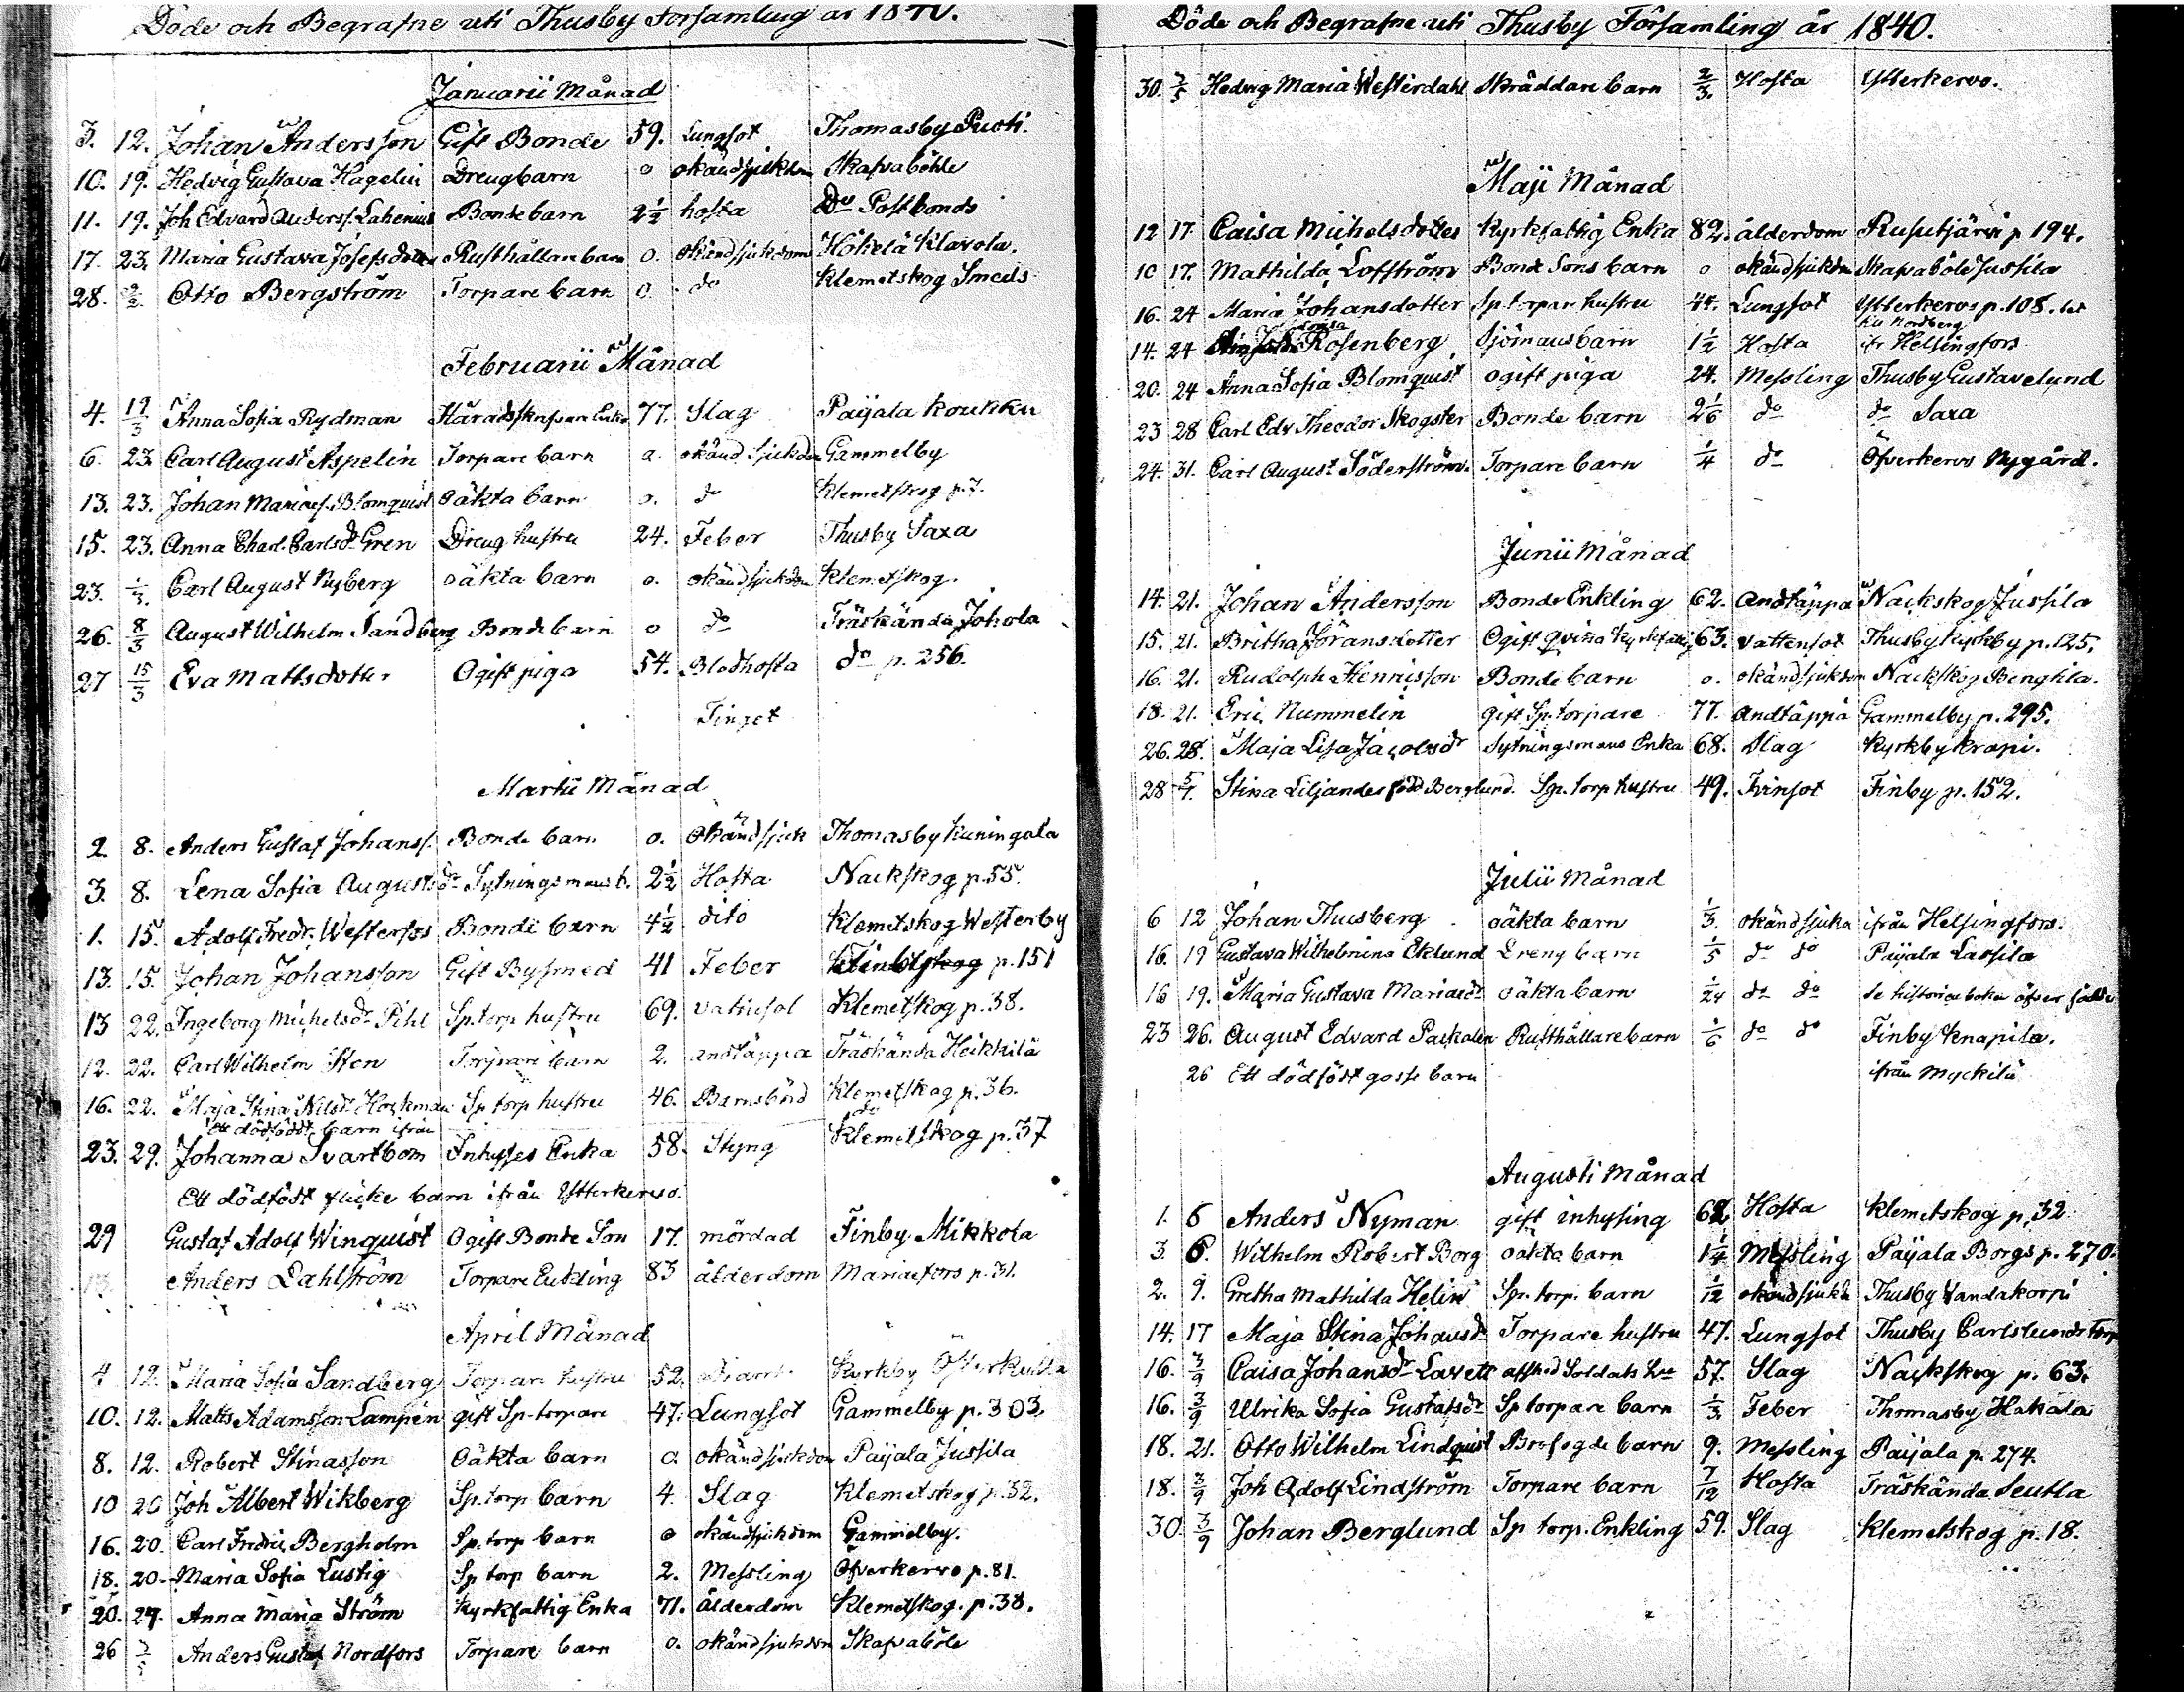 Döde och Begrafne uti Thusby Forsamling år 1840.
Januarii Månad
3. 12. Johan Andersson Gift Bonde 59. Lungsot Thomasby Puoti.
10. 19. Hedvig Gustava Hagelin Drengbarn o okändsjukdom Skafvaböhle
11. 19. Joh Edvard Anderss. Lahenius Bonde barn 2 1/2 hosta Do Postbonds
17. 23. Maria Gustava Josefsdotter Rusthållare barn o. okändsjukdom Hökelä Klavola.
28. 2/2 Otto Bergström Torpare barn o. do Klemetskog Smeds
Februarii Månad
4. 19/3 Anna Sofia Rydman Häradsskrifvare Enka 77. Slag Paijala Koukku
6. 23. Carl August Aspelin Torpare barn o. okänd Sjukdom Gammelby
13. 23. Johan Marias. Blomquist oäkta barn o. do Klemetskog p. 7.
15. 23. Anna Charl. Carlsdr Gren Dreng hustru 24. Feber Thusby Saxa
23. 1/3. Carl August Nyberg oäkta barn o. okändsjukdom Klemetskog.
26. 8/3 August Wilhelm Sandberg Bonde barn o do Träskända Johola
27 15/3 Eva Mattsdotter Ogift piga 54. Blodhosta do p. 256.
Tinget
Martii Månad
2. 8. Anders Gustaf Johanss. Bonde barn o. okändsjuk Thomasby Kuningala
3. 8. Lena Sofia Augustsdr Sytningsmans b. 2 1/2 Hosta Nackskog p. 55.
1. 15. Adolf Fredr. Westerfors Bonde barn 4 1/2 dito Klemetskog Westerby
13. 15. Johan Johansson Gift Bysmed 41 Feber p. 151
13 22. Ingeborg Michelsdr Pihl Sp. torp hustru 69. vattusot Klemetskog p. 38.
12. 22. Carl Wilhelm Sten Torpare barn 2. andtäppa Träskända Heikkilä
16. 22. Maja Stina Nilsdr Hockman Sp torp hustru 46. Barnsbörd Klemetskog p. 36.
Ett dödfödt barn ifrån do
23. 29. Johanna Svartbom Inhyses Enka 58. Styng Klemetskog p. 37
Ett dödfödt flicke barn ifrån Ytterkervo.
29 Gustaf Adolf Winquist Ogift Bonde Son 17. mördad Finby Mikkola
13. Anders Dahlström Torpare Enkling 83 ålderdom Mariaefors p. 31.
April Månad
4 12. Maria Sofia Sandberg Torpare hustru 52. Kyrkby
10. 12. Matts Adamsson Lampén gift Sp-torpare 47. Lungsot Gammelby p. 303.
8. 12. Robert Stinasson Oäkta barn o. okändsjukdom Paijala Jussila
10 20 Joh Albert Wikberg Sp. torp barn 4. Slag Klemetskog p. 32.
16. 20. Carl Fredric Bergholm Sp. torp barn o okändsjukdom Gammelby.
18. 20. Maria Sofia Lustig Sp torp barn 2. Messling Ofverkervo p. 81.
20. 24. Anna Maria Ström kyrkfattig Enka 71. ålderdom Klemetskog. p. 38.
26 3/5 Anders Gustaf Nordfors Torpare barn o. okändsjukdom Skafvaböle
Döde och Begrafne uti Thusby Församling år 1840.
30. 3/5 Hedvig Maria Westerdahl Skräddare barn 2/3. Hosta Ytterkervo.
Maji Månad
12 17. Caisa Michelsdotter kyrkfattig Enka 82. ålderdom Rusutjärvi p 194.
10 17. Mathilda Loffström Bonde Sons barn o okändsjukdom Skafvaböle Jussila
16. 24 Maria Johansdotter Sp. torpar hustru 44. Lungsot Ytterkervo p. 108.
14. 24 Rosenberg Sjömans barn 1 1/2 Hosta ifr Helsingfors
20. 24 Anna Sofia Blomquist ogift piga 24. Messling Thusby Gustavelund
23 28 Carl Edv Theodor Skogster Bonde barn 2 1/6 do do Saxa
24. 31. Carl August Söderström. Torpare barn 1/4 do Öfverkervo Nygård.
Junii Månad
14. 21. Johan Andersson Bonde Enkling 62. Andtäppa Nackskog Jussila
15. 21. Britha Göransdotter Ogift qvina kyrkfattig 63. vattensot Thusby kyrkby p. 125.
16. 21. Rudolph Henrisson Bonde barn o. okändsjukdom Nackskog Benghla.
18. 21. Eric Nummelin gift Sp. torpare 77. Andtäppa Gammelby p. 295.
26. 28. Maja Lisa Jacobsdr Sytningsmans Enka 68. Slag Kyrkby krapi.
28 5/7. Stina Liljander född Berglund. Sp. torp hustru 49. Tvinsot Finby p. 152.
Julii Månad
6 12 Johan Thusberg oäkta barn 1/3. okändsjuka ifrån Helsingfors.
16. 19 Gustava Wilhelmina Eklund Dreng barn 1/5 do do Paijala Lassila
16 19. Maria Gustava Mariaedr oäkta barn 1/24 do do Se historieboken öfver
23 26. August Edvard Packalen Rusthållare barn 1/6 do do Finby Knapila.
26 Ett dödfödt gosse barn ifrån Myckilä
Augusti Månad
1. 6 Anders Nyman gift inhysing 62 Hosta Klemetskog p. 32
3. 6. Wilhelm Robert Borg oäkta barn 1 1/4 Messling Paijala Borgs p. 270.
2. 9. Gretha Mathilda Helin Sp. torp. barn 1/12 okändsjuka Thusby Vandakorpi
14. 17 Maja Stina Johansdr Torpare hustru 47. Lungsot Thusby Carlslunds torp
16. 3/9 Caisa Johansdr Lavett afsked Soldats hu 57. Slag Nackskog p. 63.
16. 3/9 Ulrika Sofia Gustafsdr Sp torpare barn 1/3. Feber Thomasby Hakala
18. 21. Otto Wilhelm Lindquist Brofogde barn 9. Messling Paijala p. 274.
18. 3/9 Joh Adolf Lindström Torpare barn 7/12 Hosta Träskända Seutla
30. 3/9 Johan Berglund Sp torp. Enkling 59. Slag Klemetskog p. 18.